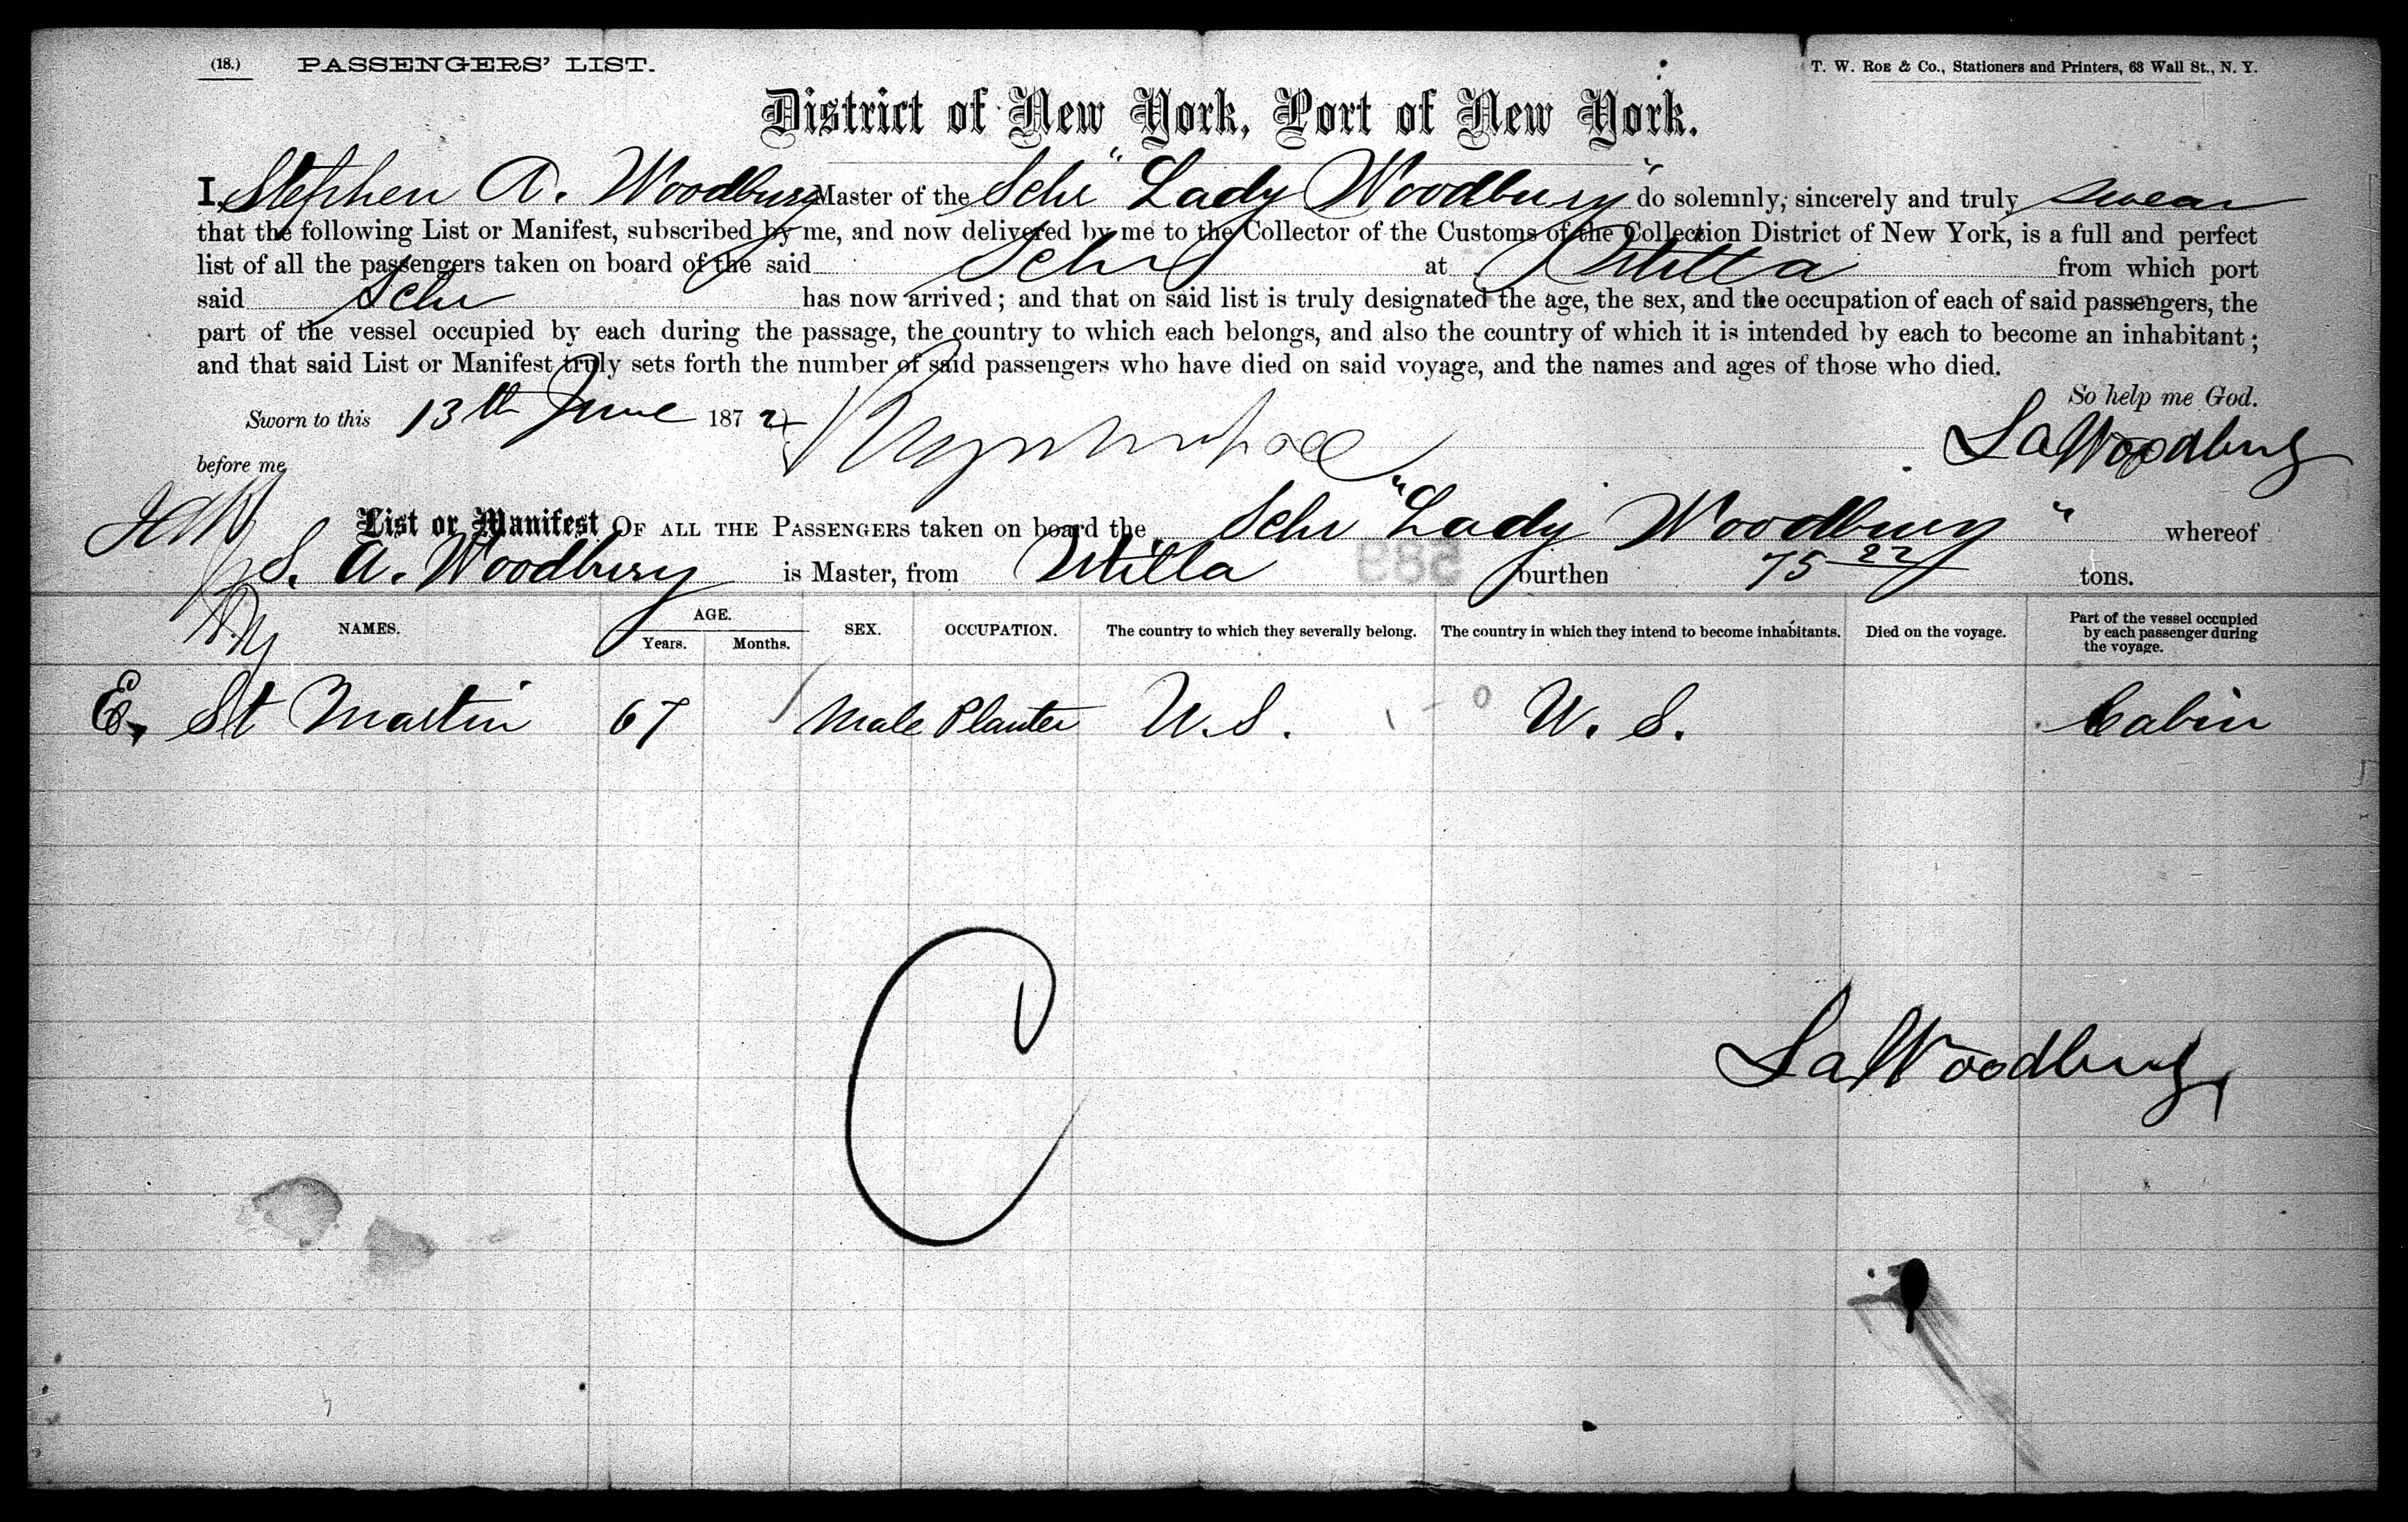 (18.) PASSENGERS' LIST. T. W. Roe & Co., Stationers and Printers, 63 Wall St., N. Y.
District of New York, Port of New York.
I, Stephen A. Woodbury Master of the Schr "Lady Woodbury" do solemnly, sincerely and truly swear
that the following List or Manifest, subscribed by me, and now delivered by me to the Collector of the Customs of the Collection District of New York, is a full and perfect
list of all the passengers taken on board of the said Schr at Utilla from which port
said Schr has now arrived; and that on said list is truly designated the age, the sex, and the occupation of each of said passengers, the
part of the vessel occupied by each during the passage, the country to which each belongs, and also the country of which it is intended by each to become an inhabitant;
and that said List or Manifest truly sets forth the number of said passengers who have died on said voyage, and the names and ages of those who died.
So help me God.
Sworn to this 13th June 187
S A Woodbury
before me
List or Manifest OF ALL THE PASSENGERS taken on board the Schr "Lady Woodbury" whereof
S. A. Woodbury is Master, from Utilla burthen 75 22 tons.
NAMES. AGE. Years. Months. SEX. OCCUPATION. The country to which they severally belong. The country in which they intend to become inhabitants. Died on the voyage. Part of the vessel occupied by each passenger during the voyage.
E. St Martin 67 Male Planter U.S. U.S. Cabin
C
S A Woodbury